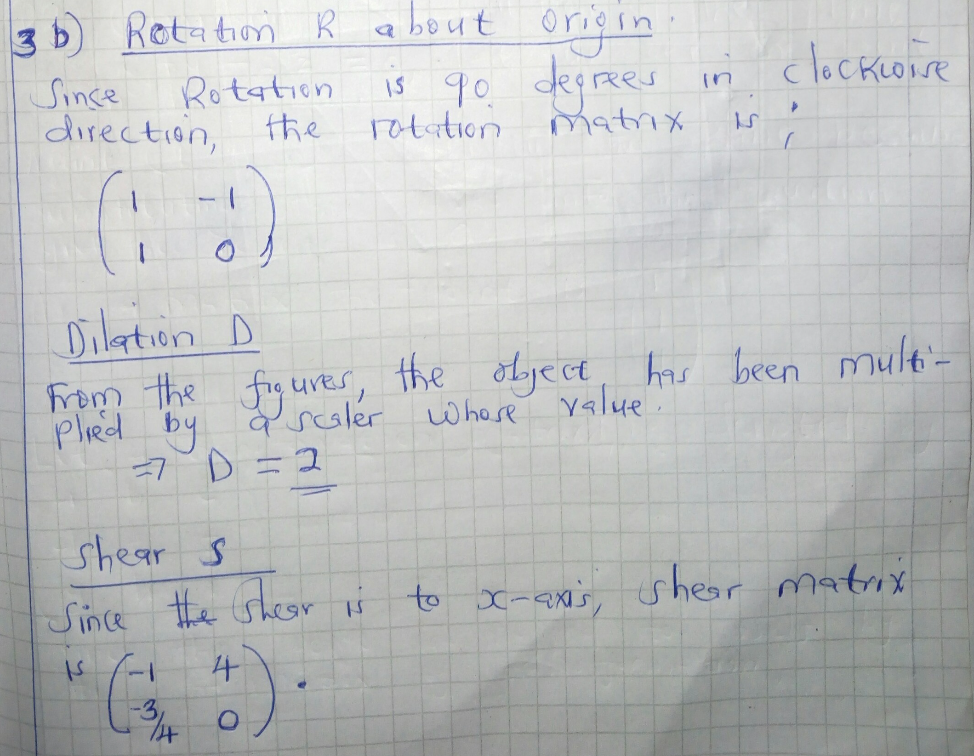 3 b) Rotation R about origin.
Since Rotation is 90 degrees in clockwise
direction, the rotation matrix is;
( 1 -1
1 0 )
Dilation D
From the figures, the object has been multi-
plied by a scaler whose value.
=> D = 2
Shear S
Since the shear is to x-axis, shear matrix
is ( -1 4
-3/4 0 ).